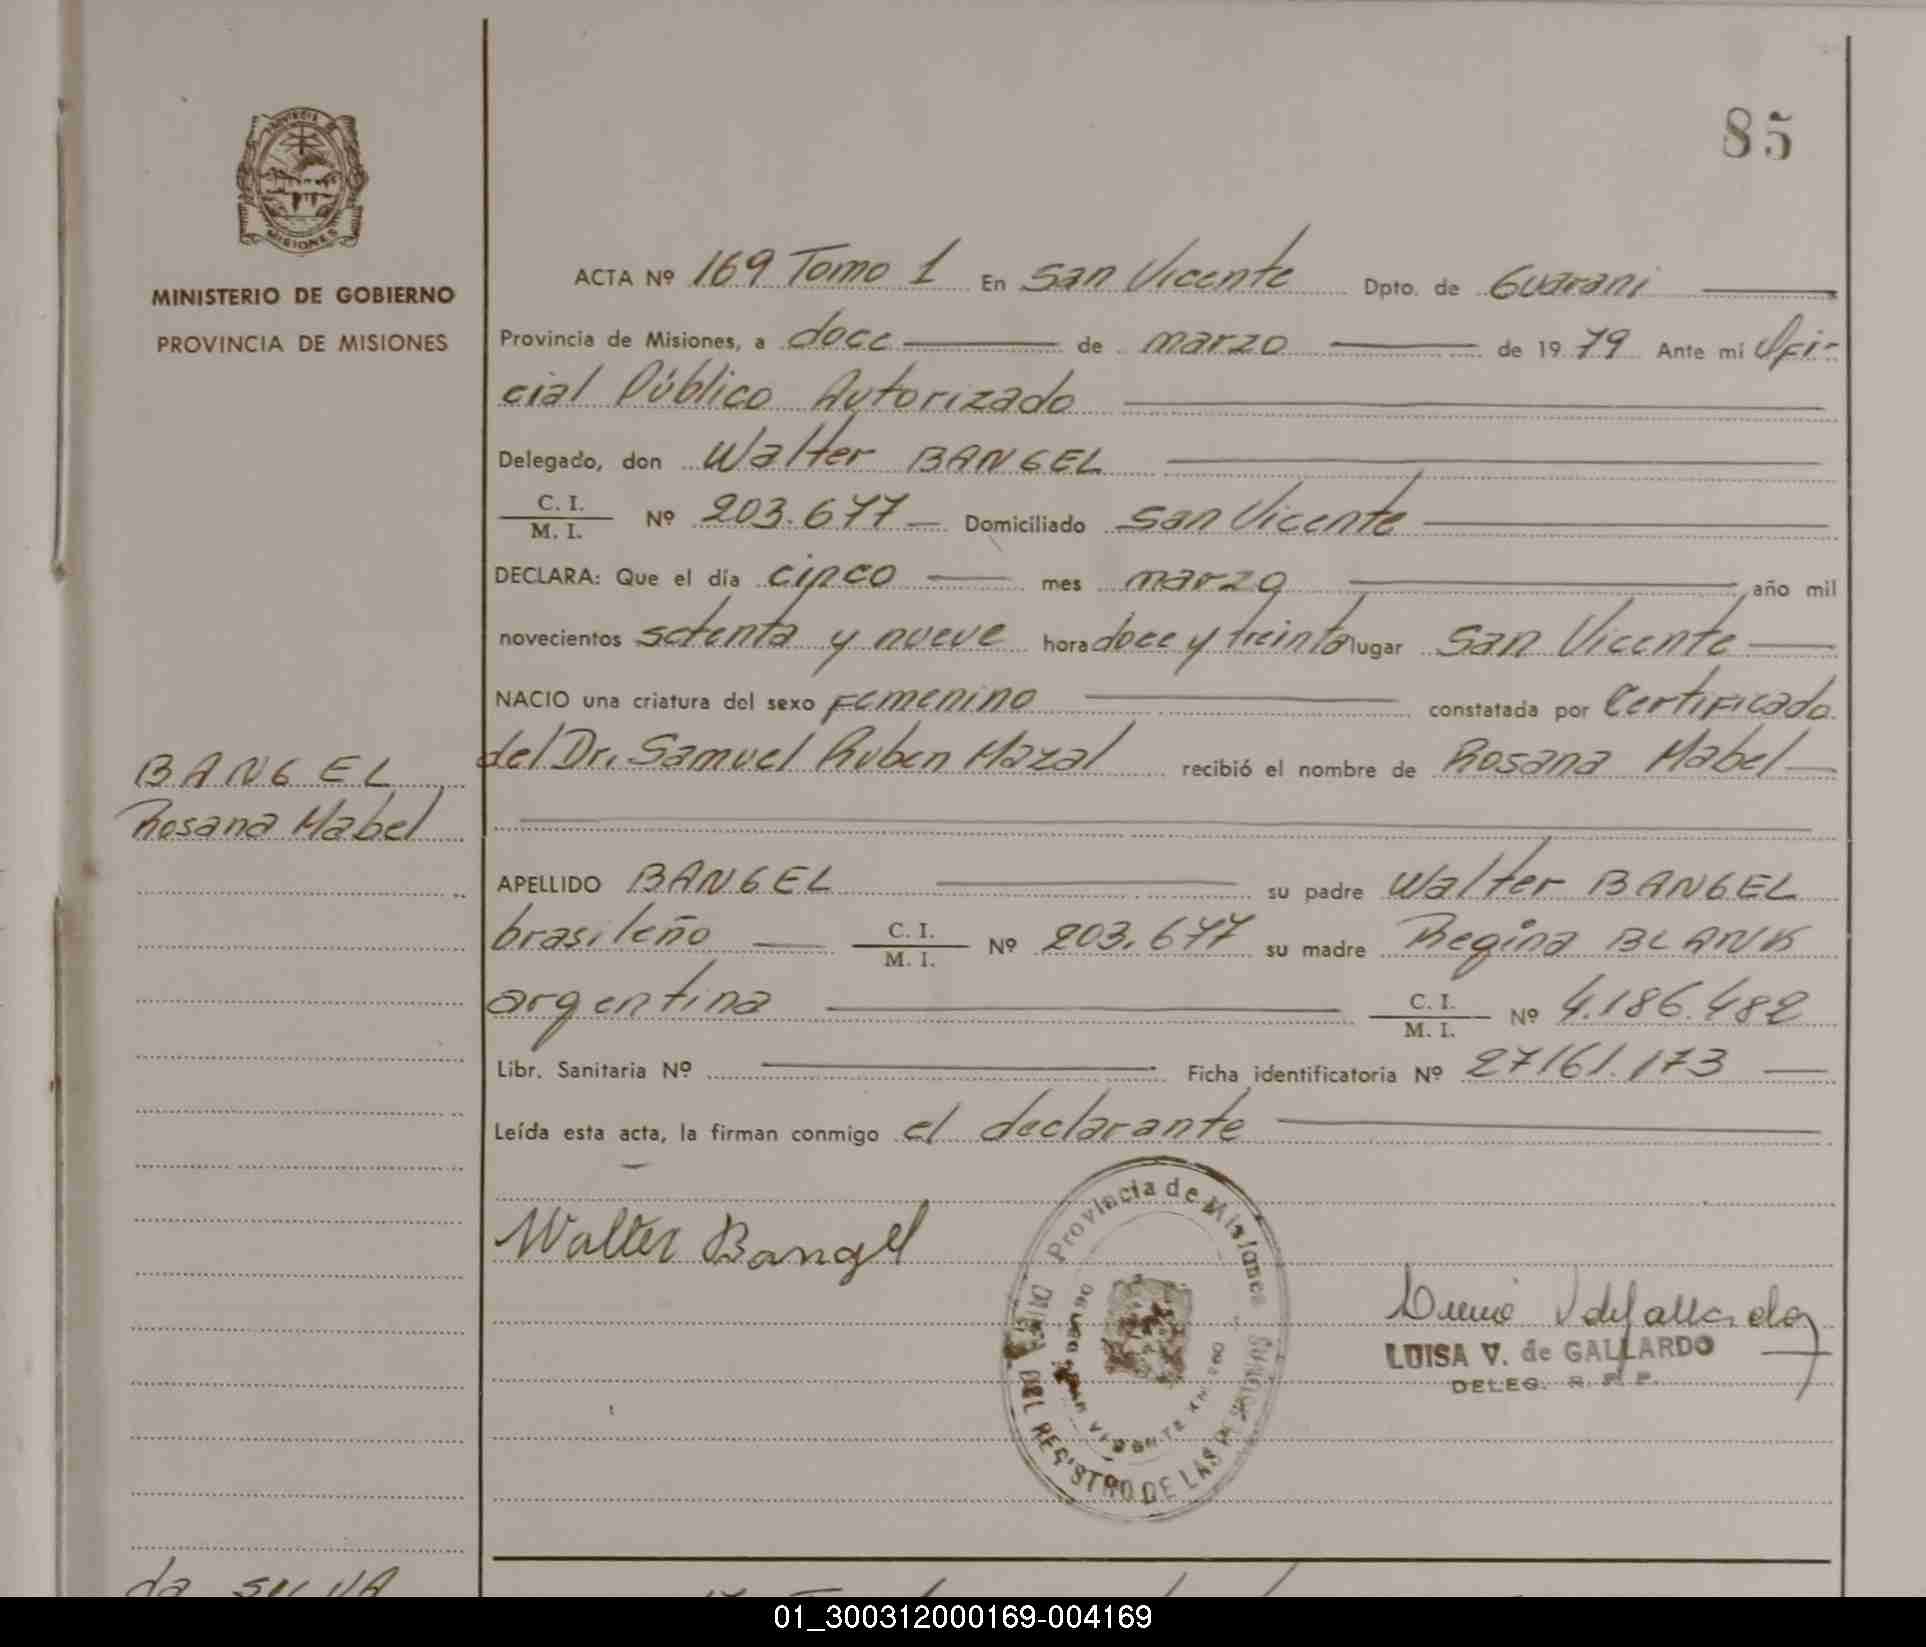 85
PROVINCIA DE
MISIONES
MINISTERIO DE GOBIERNO
PROVINCIA DE MISIONES
ACTA Nº 169 Tomo 1 En San Vicente Dpto. de Guarani
Provincia de Misiones, a doce de marzo de 1979 Ante mi Ofi-
cial Público Autorizado
Delegado, don Walter BANGEL
C. I.
M. I. Nº 203.677 Domiciliado San Vicente
DECLARA: Que el día cinco mes marzo año mil
novecientos setenta y nueve hora doce y treinta lugar San Vicente
NACIO una criatura del sexo Femenino constatada por Certificado
del Dr. Samuel Ruben Mazal recibió el nombre de Rosana Mabel
BANGEL
Rosana Mabel
APELLIDO BANGEL su padre Walter BANGEL
brasileño C. I. M. I. Nº 203.677 su madre Regina BLANK
argentina C. I. M. I. Nº 4.186.482
Libr. Sanitaria Nº Ficha identificatoria Nº 27161.173
Leída esta acta, la firman conmigo el declarante
Walter Bangel
Provincia de Misiones
DEL REGISTRO DE LAS
LUISA V. de GALLARDO
DELEG. R. P. P.
01_300312000169-004169